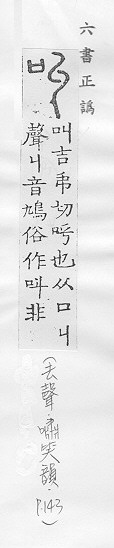 六書正譌
叫吉弔切呼也从口丩
聲丩音鳩俗作呌非
(去聲.嘯笑韻.
P.143)